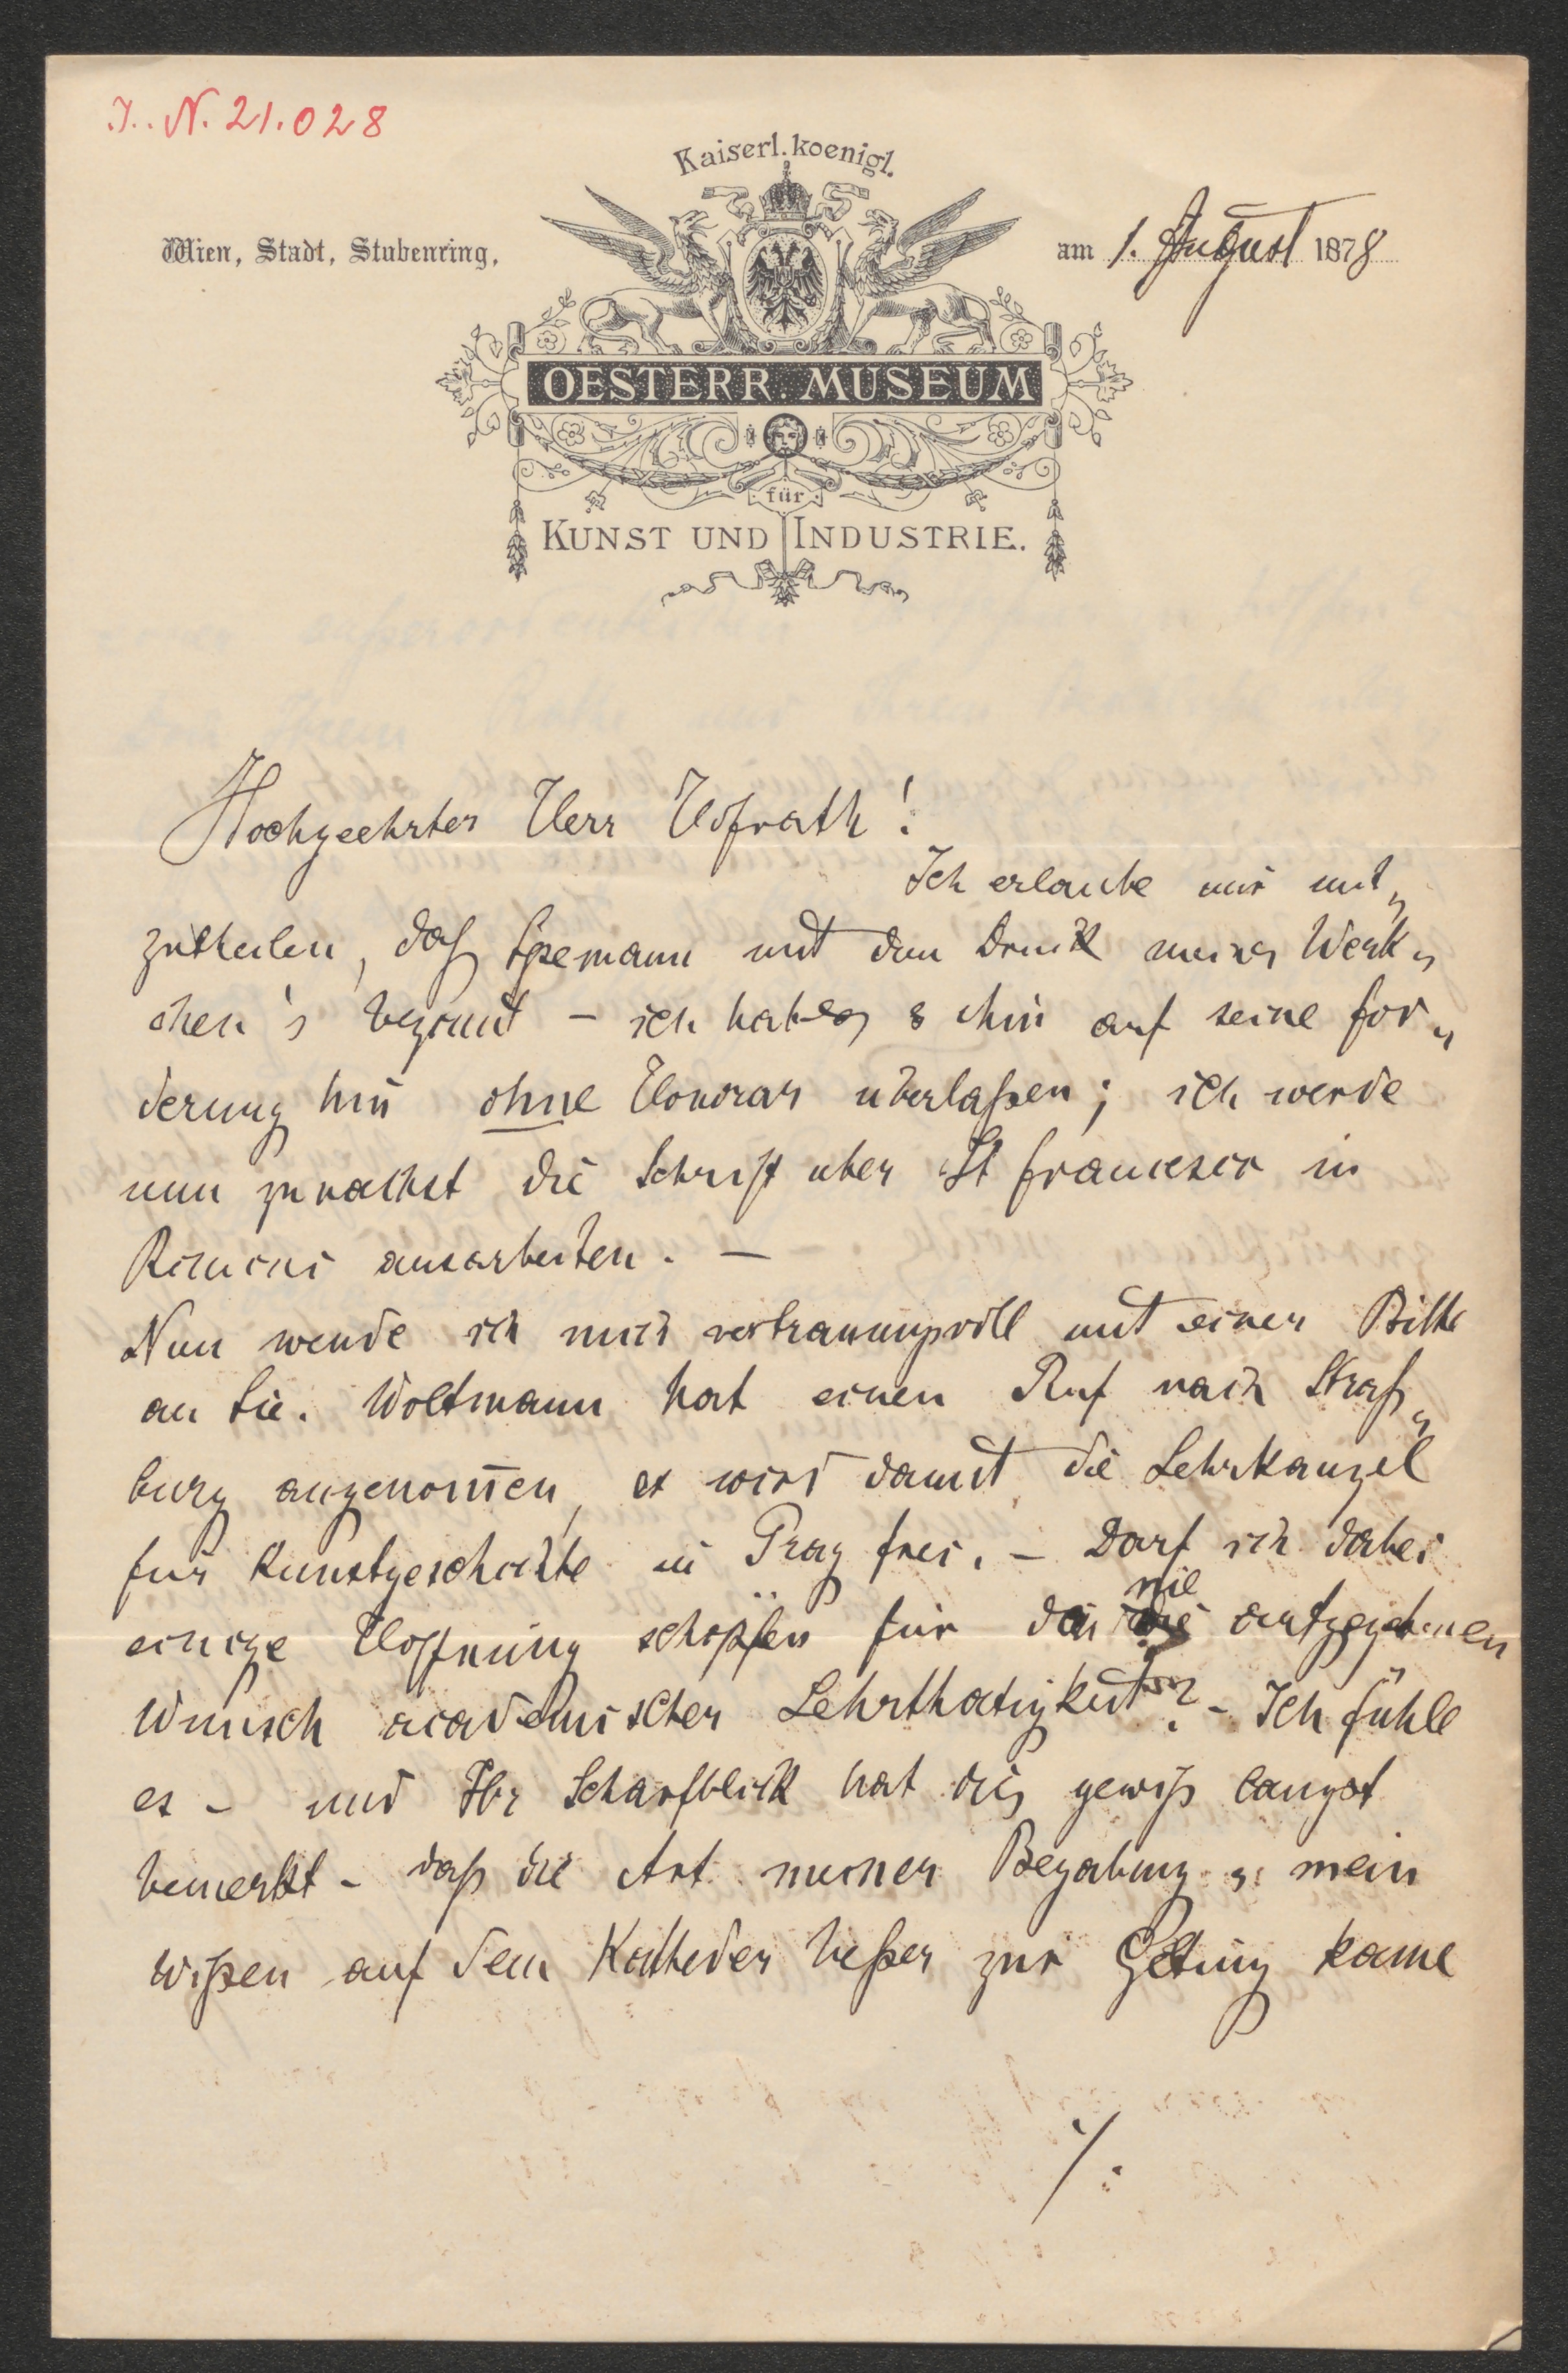 I. N. 21.028
Kaiserl. koenigl.
Wien, Stadt, Stubenring,
am 1. August 1878
OESTERR. MUSEUM
für
KUNST UND INDUSTRIE.
Hochgeehrter Herr Hofrath!
Ich erlaube mir mit„
zutheilen, daß Spemann mit dem Druck meines Werk„
chen's beginnt – ich habe es ihm auf seine For„
derung hin ohne Honorar überlaßen; ich werde
nun zunachst die Schrift uber St Francesco in
Rimini ausarbeiten. —
Nun wende ich mich vertrauungsvoll mit einer Bitte
an Sie. Woltmann hat einen Ruf nach Straß„
burg angenom̅en, es wird damit die Lehrkanzel
für Kunstgeschichte in Prag frei. – Darf ich dabei
einige Hoffnung schöpfen für den nie aufgegebenen
Wunsch academischer Lehrthatigkeit? – Ich fühle
es – und Ihr Scharfblick hat dies gewiß langst
bemerkt – daß die Art meiner Begabung u mein
Wißen auf dem Katheder beßer zur Geltung kame
/.